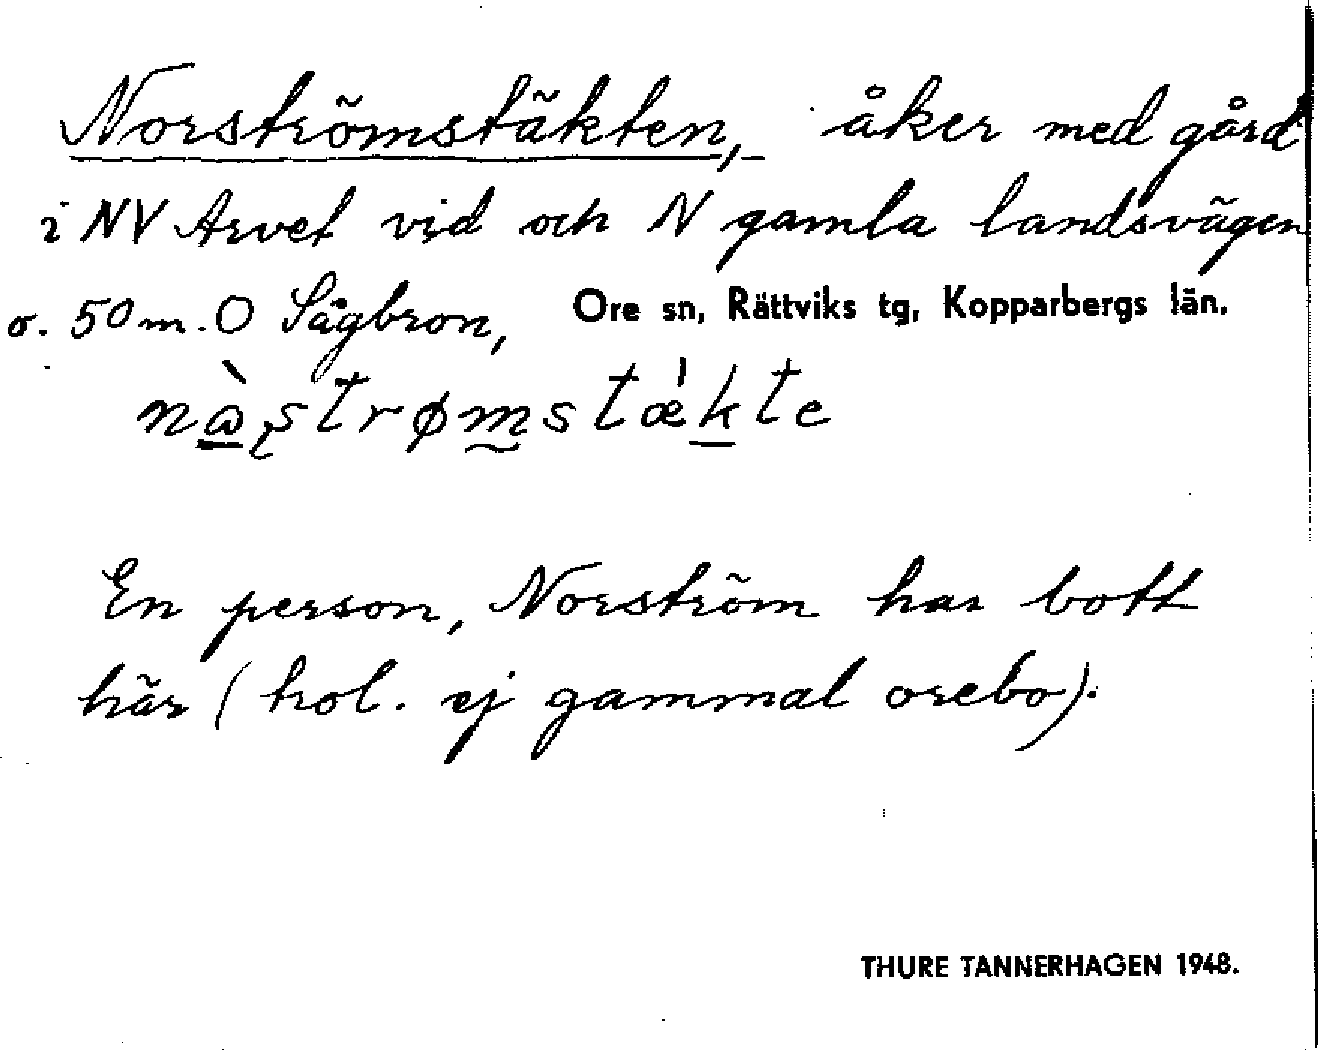 Norströmstäkten, åker med gård
i NV Arvet vid och N gamla landsvägen
o. 50 m. O Sågbron, Ore sn, Rättviks tg, Kopparbergs län.
nàstrømstækte
En person, Norström har bott
här (trol. ej gammal orebo).
THURE TANNERHAGEN 1948.